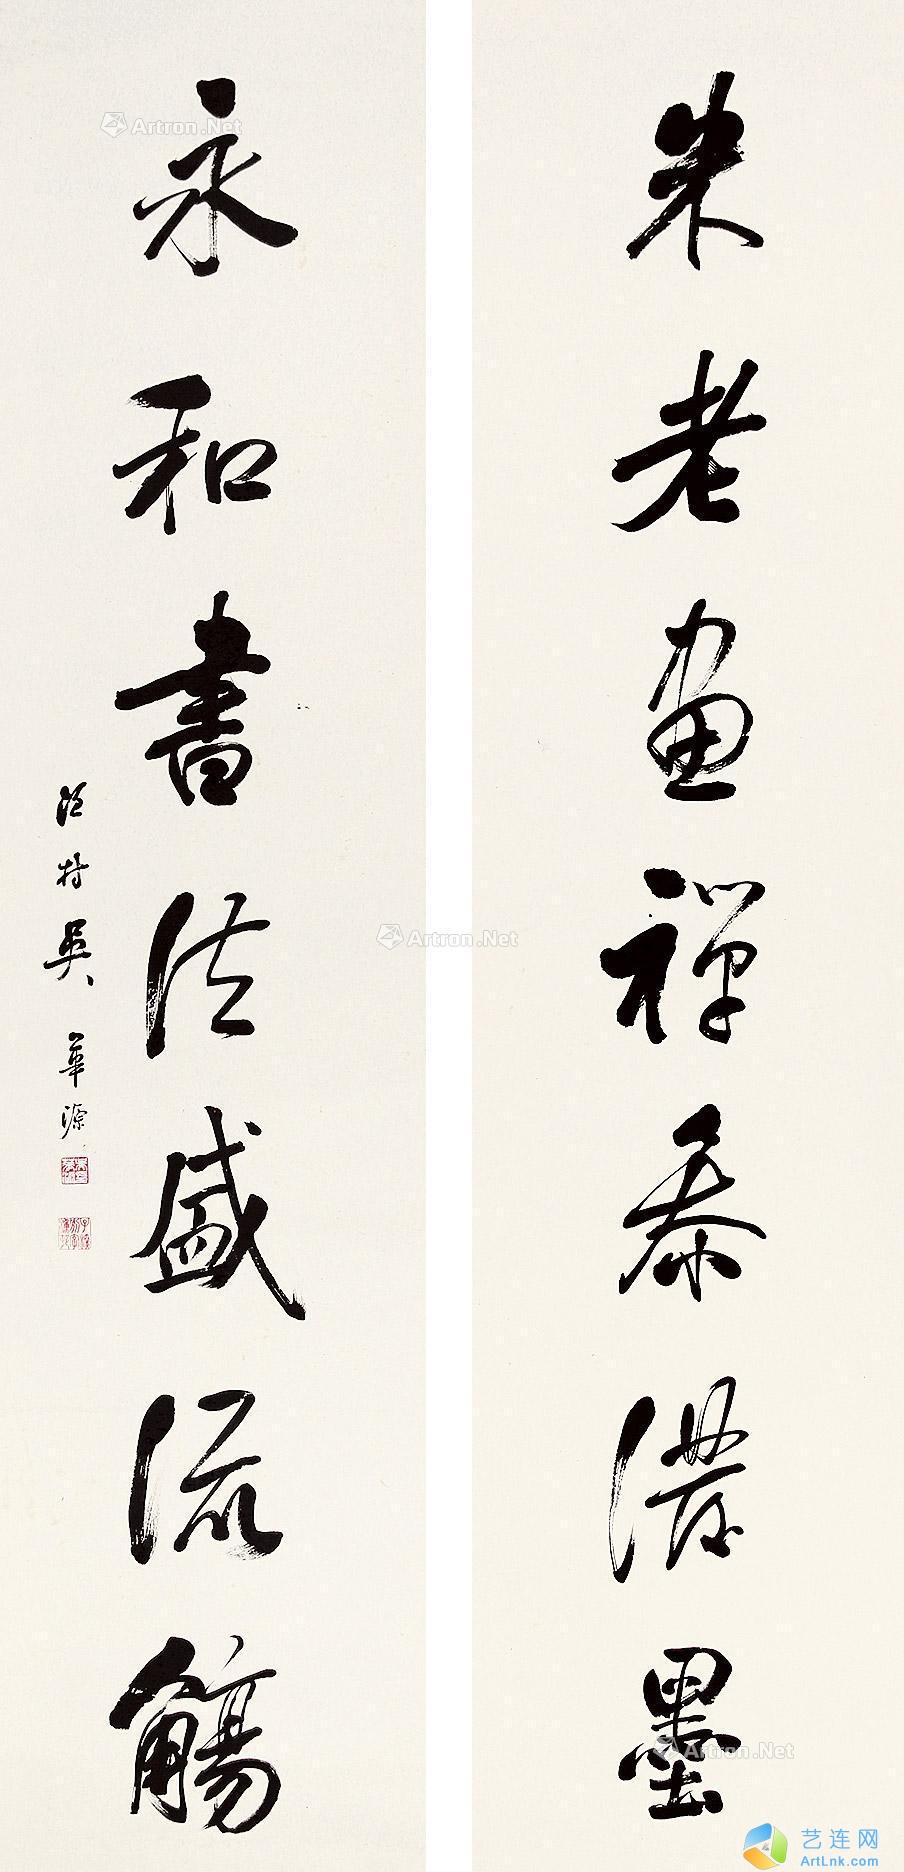 米老画禅参濃墨
永和書法盛流觴
江村吳華源
Artron.Net
Artron.Net
Artron.Net
艺连网
ArtLnk.com